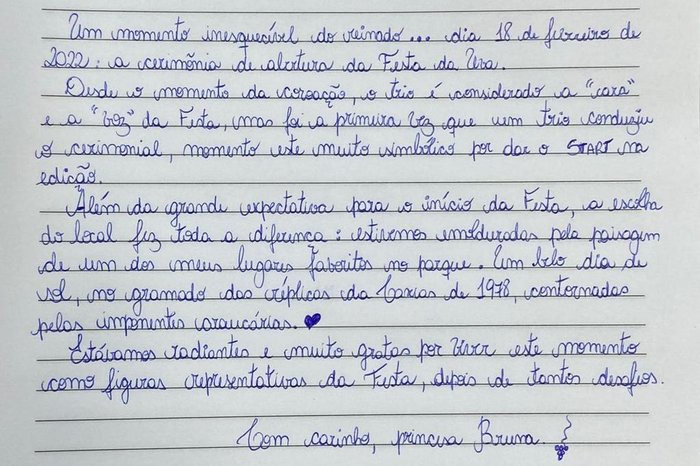 Um momento inesquecível do reinado... dia 18 de fevereiro de
2022: a cerimônia de abertura da Festa da Uva.
Desde o momento da coroação, o trio é considerado a "cara"
e a "voz" da Festa, mas foi a primeira vez que um trio conduziu
o cerimonial, momento este muito simbólico por dar o START na
edição.
Além da grande expectativa para o início da Festa, a escolha
do local fez toda a diferença: estivemos emolduradas pela paisagem
de um dos meus lugares favoritos no parque. Um belo dia de
sol, no gramado das réplicas da Caxias de 1978, contornadas
pelas imponentes araucárias. ♥
Estávamos radiantes e muito gratas por viver este momento
como figuras representativas da Festa, depois de tantos desafios.
Com carinho, princesa Bruna.